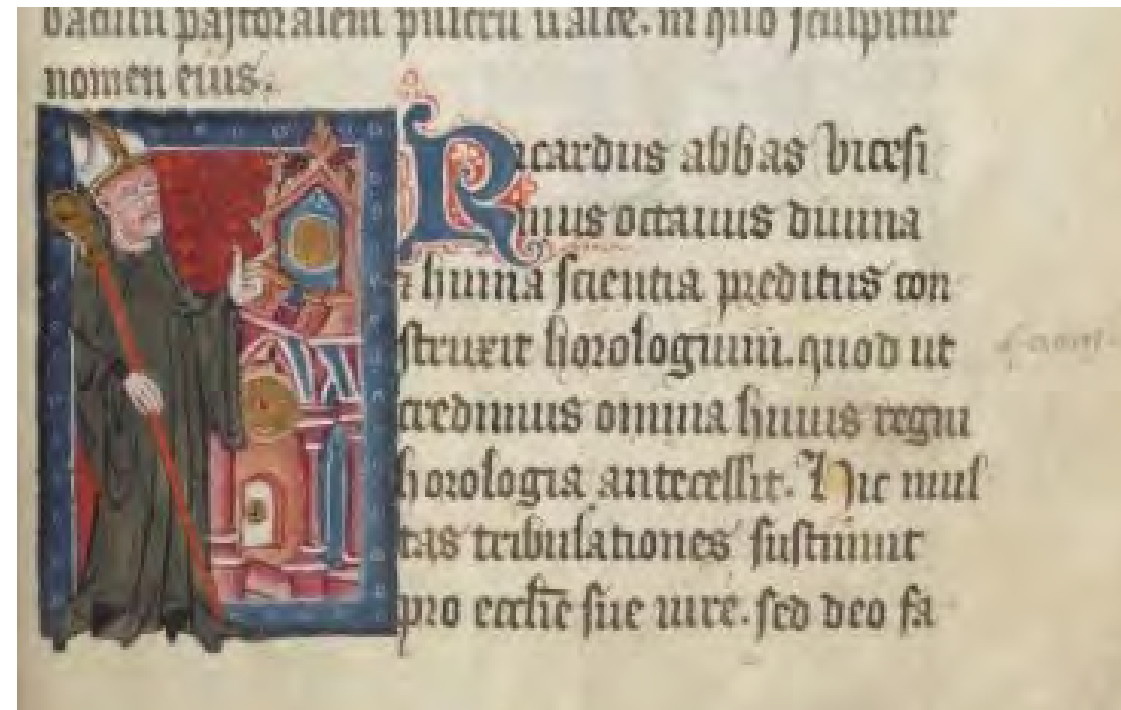 baculu pastoralem pulcru ualde. in quo sculpitur
nomen eius.
Ricardus abbas vicesi
mus octauus diuina
⁊ humna scientia preditus con
struxit horologium. quod ut
credimus omnia huius regni
horologia antecessit. Hic mul
tas tribulationes sustinuit
pro ecclie sue iure. sed deo fa